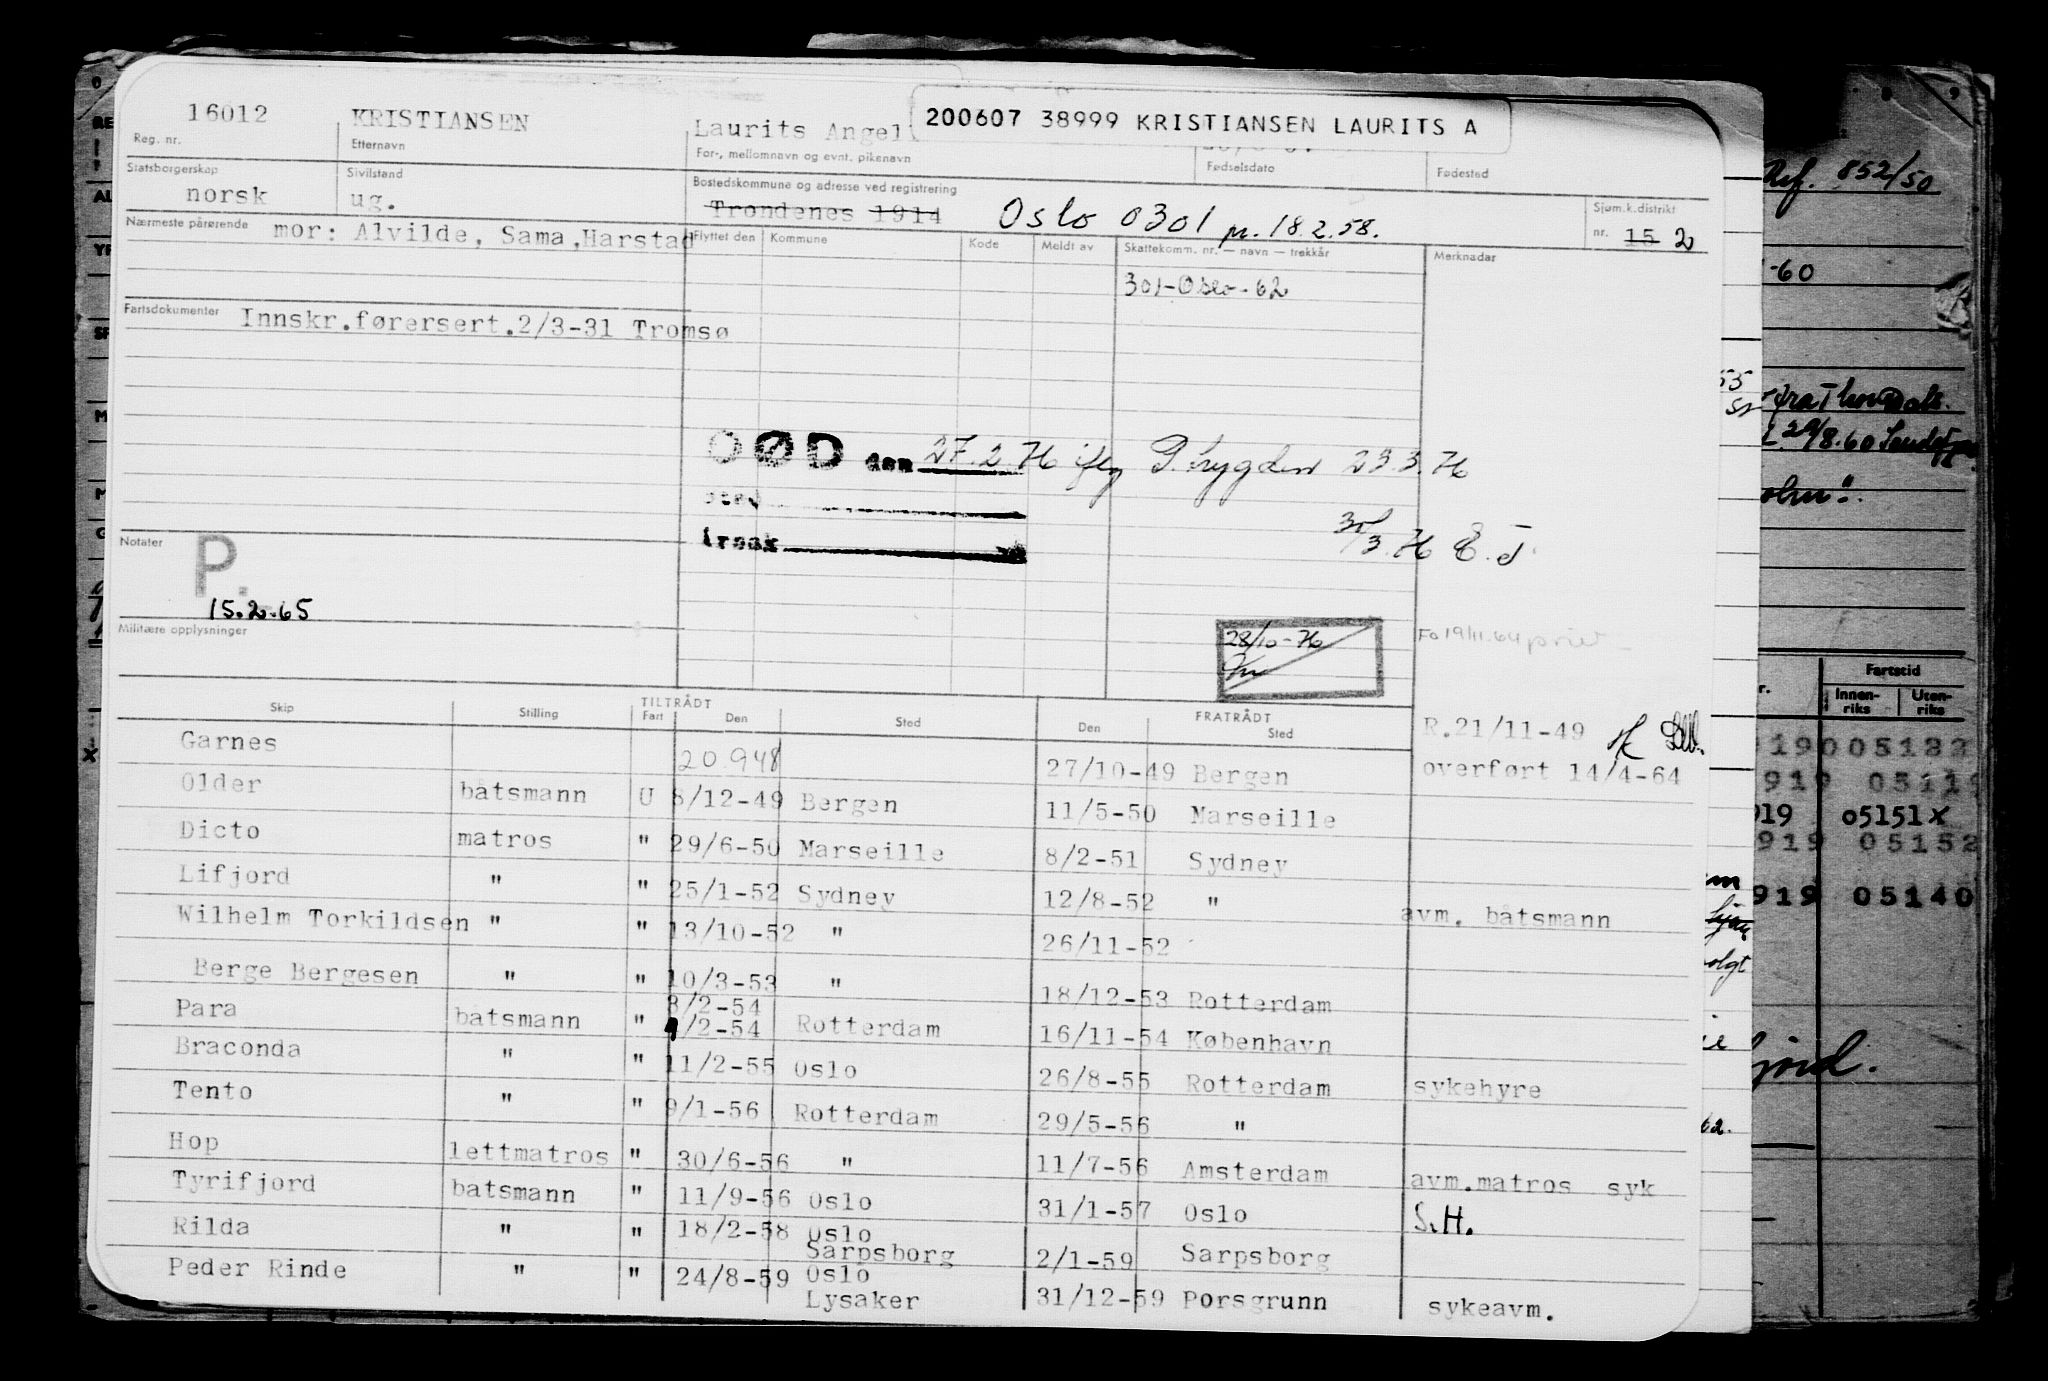 16012 KRISTIANSEN Laurits Angell 200607 38999 KRISTIANSEN LAURITS A
Reg. nr. Etternavn For-, mellomnavn og evnt. pikenavn Fødselsdato Fødested
Statsborgerskap Sivilstand Bostedskommune og adresse ved registrering Sjøm.k.distrikt
norsk ug. Trondenes 1914 Oslo 0301 pr. 18.2.58. nr. 15 2
Nærmeste pårørende mor: Alvilde, Sama, Harstad
Flyttet den Kommune Kode Meldt av Skattekomm. nr. — navn — trekkår Merknadar
301-Oslo-62
Fartsdokumenter Innskr.førersert.2/3-31 Tromsø
DØD den 27.2.76 iflg P.trygden 23.3.76
sted
årsak
30/3.76 E.J
Notater P.
15.2.65
Militære opplysninger
28/10-76
Fo 19/11.64 privat
Skip Stilling TILTRÅDT Fart Den Sted FRATRÅDT Den Sted
R.21/11-49
Garnes 20.948 27/10-49 Bergen overført 14/4-64
Older båtsmann U 8/12-49 Bergen 11/5-50 Marseille
Dicto matros " 29/6-50 Marseille 8/2-51 Sydney
Lifjord " " 25/1-52 Sydney 12/8-52 " avm. båtsmann
Wilhelm Torkildsen " " 13/10-52 " 26/11-52
Berge Bergesen " " 10/3-53 " 18/12-53 Rotterdam
8/2-54
Para båtsmann " 9/2-54 Rotterdam 16/11-54 København
Braconda " " 11/2-55 Oslo 26/8-55 Rotterdam sykehyre
Tento " " 9/1-56 Rotterdam 29/5-56 "
Hop lettmatros " 30/6-56 " 11/7-56 Amsterdam avm.matros syk
Tyrifjord båtsmann " 11/9-56 Oslo 31/1-57 Oslo S.H.
Rilda " " 18/2-58 Oslo
Sarpsborg 2/1-59 Sarpsborg
Peder Rinde " " 24/8-59 Oslo
Lysaker 31/12-59 Porsgrunn sykeavm.
Ref. 852/50
-60
29/8.60
Fartstid
Innen-riks Uten-riks
19 0051
919 0511
919 05151X
919 05152
919 05140